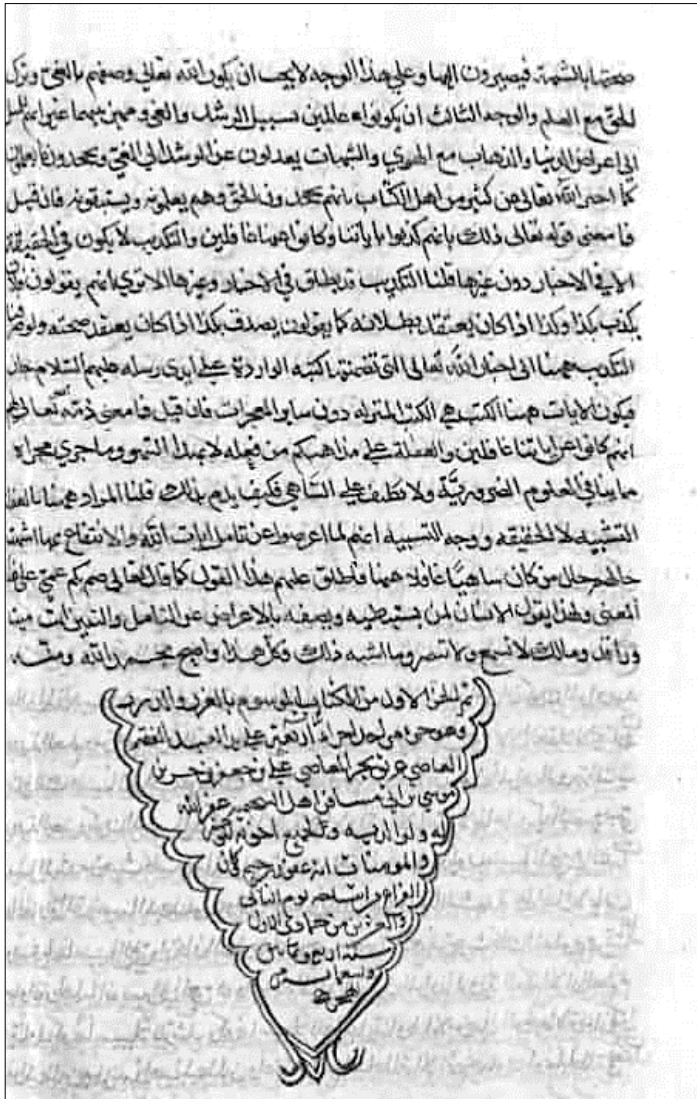 صحتها بالشبهة فيصيرون اليها وعلى هذا الوجه لا يجب ان يكون الله تعالى وصفهم بالغي وترك
الحق مع العلم والوجه الثالث ان يكونوا عالمين بسبيل الرشد والغي ومميزين بينهما غير انهم للميل
الى اعراض الدنيا والذهاب مع الهوى والشبهات يعدلون عن الرشد الى الغي ويجحدون ما يعلمون
كما اخبر الله تعالى عن كثير من اهل الكتاب بانهم يجحدون الحق وهم يعلمونه ويستيقنونه فان قيل
فما معنى قوله تعالى ذلك بانهم كذبوا باياتنا وكانوا عنها غافلين والتكذيب لا يكون في الحقيقة
الا في الاخبار دون غيرها قلنا التكذيب قد يطلق في الاخبار وغيرها الا ترى انهم يقولون فلان
يكذب بكذا وكذا اذا كان يعتقد بطلانه كما يقولون يصدق بكذا اذا كان يعتقد صحته ولو صرفنا
التكذيب ههنا الى اخبار الله تعالى التي تضمنتها كتبه الواردة على ايدى رسله عليهم السلام جاز
فيكون الايات ههنا الكتب هي الكتب المنزله دون ساير المعجزات فان قيل فما معنى ذمه تعالى لهم
انهم كانوا عن اياتنا غافلين والغفلة على مذاهبكم من فعله لانها السهو وما جرى مجراه
مما ينافي العلوم الضرورية ولا تكليف على الساهي فكيف يذم بذلك قلنا المراد ههنا بالغفلة
التشبيه لا الحقيقه ووجه التشبيه انهم لما اعرضوا عن تامل ايات الله والانتفاع بها اشبهت
حالهم حال من كان ساهيا غافلا عنها فاطلق عليهم هذا القول كما قال تعالى صم بكم عمي على هذا
المعنى ولهذا يقول الانسان لمن يستبطيه ويصفه بالاعراض عن التامل والتبين انت ميت
وراقد ومالك لا تسمع ولا تبصر وما اشبه ذلك وكل هذا واضح بحمد الله ومنه
تم الجزا الاول من الكتاب الموسوم بالغرر والدرر
وهو جزء من اجزاء اربعة على يد العبد الفقير
العاصي علي بن جعفر بن
موسى بن ابي مسافر اهل غفر الله
له ولوالديه ولجميع اخوته
والمومنات انه غفور رحيم كان
الفراغ من يوم الثاني
والعشرين من جمادى الاولى
سنة اربع وثمانين